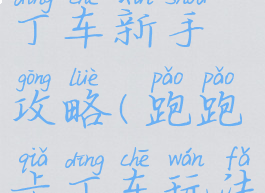 丁车新手
gōng lüè pǎo pǎo
攻略(跑跑
qiǎ dīng chē wán fǎ
卡丁车玩法